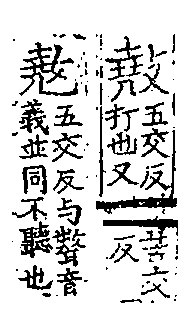 五交反
打也又
苦交
反
五交反与聱音
義並同不聽也